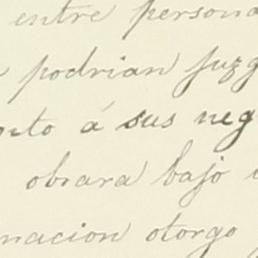 entre persona
podrian juzg
to á sus neg
obrara bajo
nacion otorgo